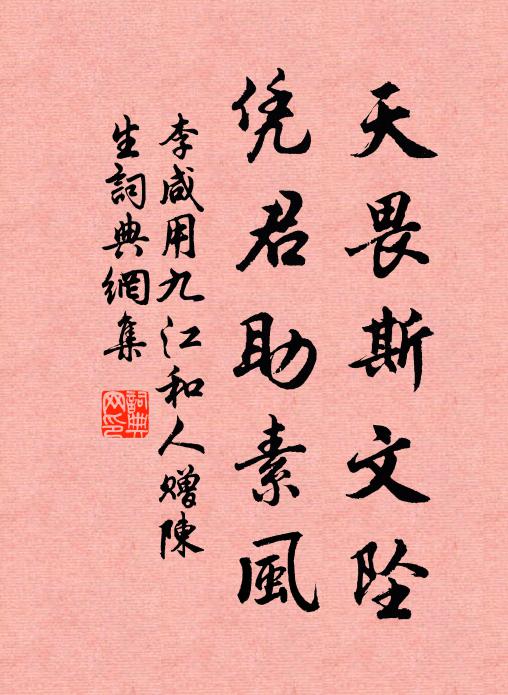 天畏斯文坠
凭君助素風
李咸用九江和人赠陳
生詞典網集
詞典
网印